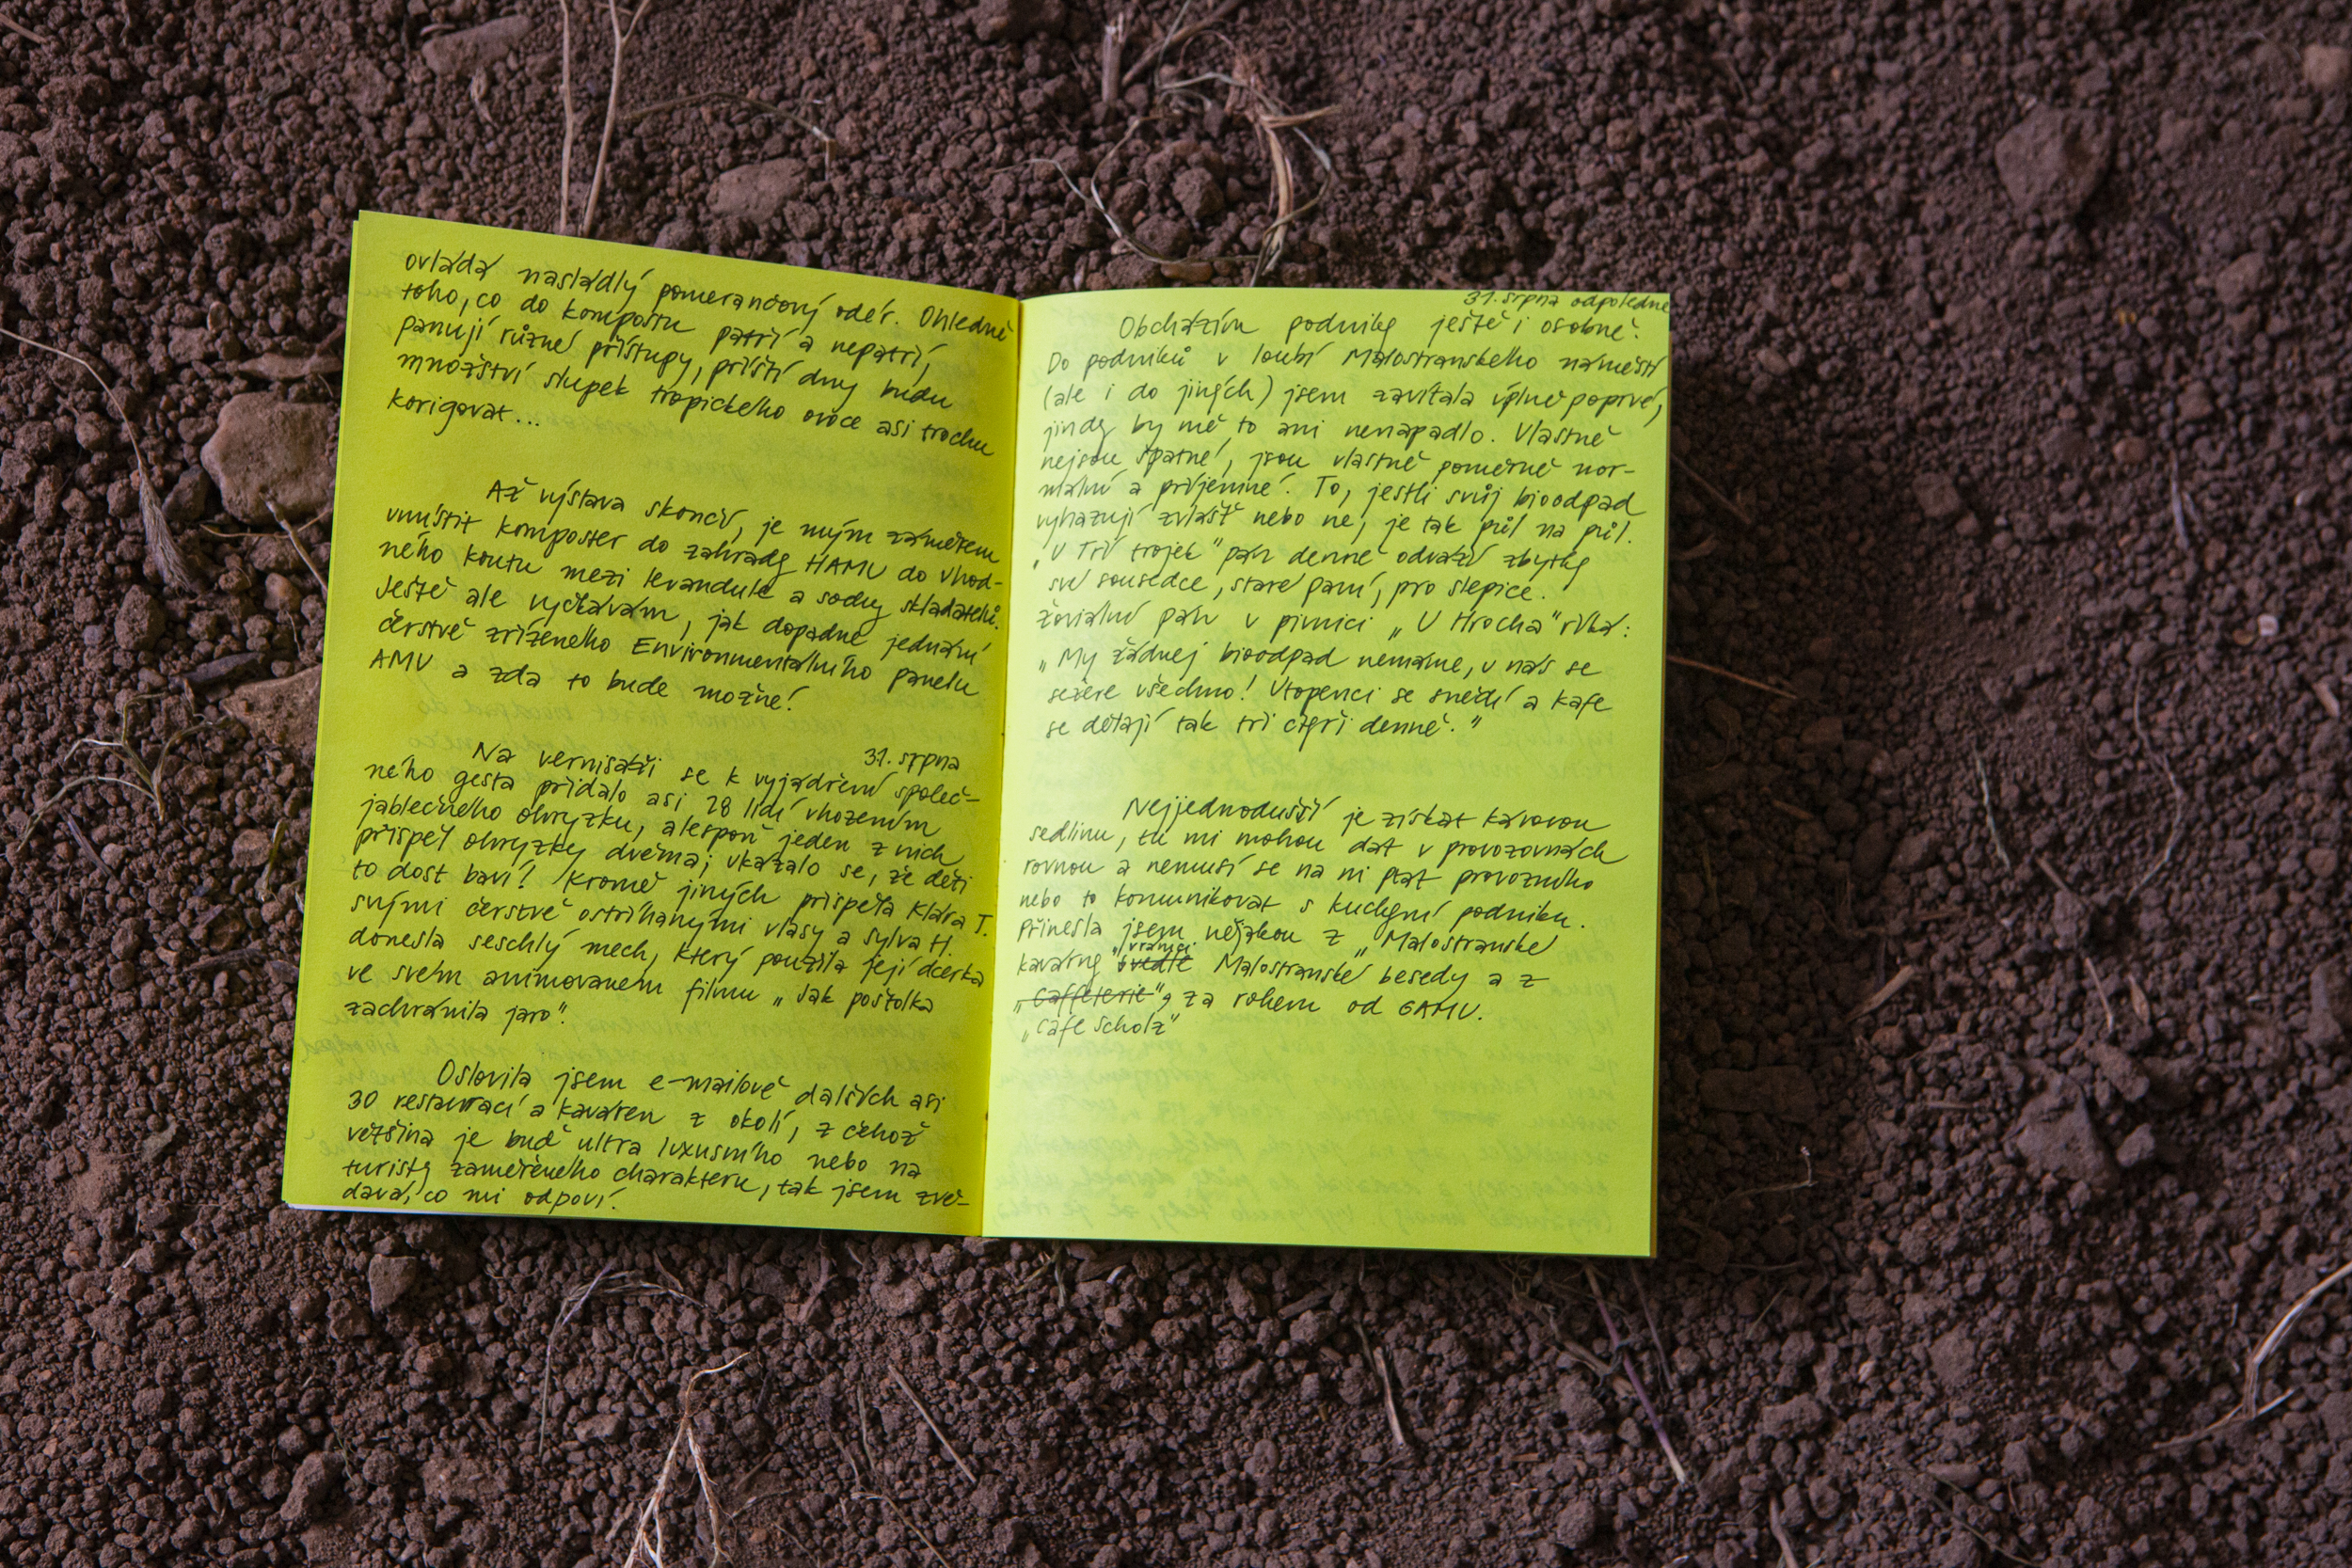 ovládá nasládlý pomerančový odér. Ohledně
toho, co do kompostu patří a nepatří,
panují různé přístupy, příští dny budu
množství slupek tropického ovoce asi trochu
korigovat...
Až výstava skončí, je mým záměrem
umístit komposter do zahrady HAMU do vhod-
ného koutu mezi levandule a sochy skladatelů.
Ještě ale vyčkávám, jak dopadne jednání
čerstvě zřízeného Environmentálního panelu
AMU a zda to bude možné!
31. srpna
Na vernisáži se k vyjádření společ-
ného gesta přidalo asi 28 lidí vhozením
jablečného ohryzku, alespoň jeden z nich
přispěl ohryzky dvěma; ukázalo se, že děti
to dost baví! Kromě jiných přispěla Klára J.
svými čerstvě ostříhanými vlasy a Sylva H.
donesla seschlý mech, který použila její dcerka
ve svém animovaném filmu „Jak poštolka
zachránila jaro".
Oslovila jsem e-mailově dalších asi
30 restaurací a kaváren z okolí, z čehož
většina je buď ultra luxusního nebo na
turisty zaměřeného charakteru, tak jsem zvě-
davá, co mi odpoví!
31. srpna odpoledne
Obcházím podniky ještě i osobně.
Do podniků v loubí Malostranského náměstí
(ale i do jiných) jsem zavítala úplně poprvé,
jindy by mě to ani nenapadlo. Vlastně
nejsou špatné, jsou vlastně poměrně nor-
mální a příjemné. To, jestli svůj bioodpad
vyhazují zvlášť nebo ne, je tak půl na půl.
„U Tří trojek" pán denně odváží zbytky
své sousedce, staré paní, pro slepice.
Žoviální pán v pivnici „U Hrocha" říká:
„My žádnej bioodpad nemáme, u nás se
sežere všechno! Utopenci se snědí a kafe
se dělají tak tři čtyři denně."
Nejjednodušší je získat kávovou
sedlinu, tu mi mohou dát v provozovnách
rovnou a nemusí se na ni ptát provozního
nebo to komunikovat s kuchyní podniku.
Přinesla jsem nějakou z „Malostranské
vrámci
kavárny" vedle Malostranské besedy a z
„Caffeterie", za rohem od GAMU.
„Café Scholz"